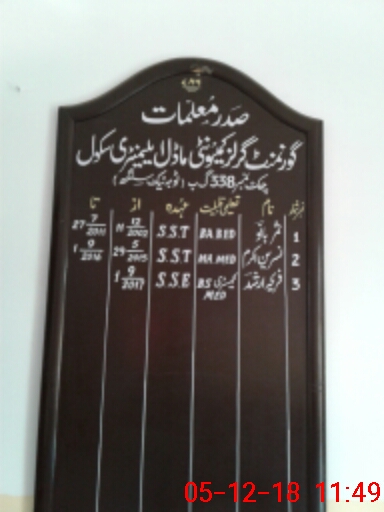 ۷۸۶
صدر معلمات
گورنمنٹ گرلز کمیونٹی ماڈل ایلیمنٹری سکول
چک نمبر 338 گ ب (ٹوبہ ٹیک سنگھ)
نمبر شمار نام تعلیمی قابلیت عہدہ از تا
1 ثمر بانو BA BED S.S.T 11 12/2002 27 7/2011
2 نسرین اکرم MA MED S.S.T 29 5/2015 1 9/2016
3 ارشد BS کیمسٹری MED S.S.E 1 9/2017
05-12-18 11:49